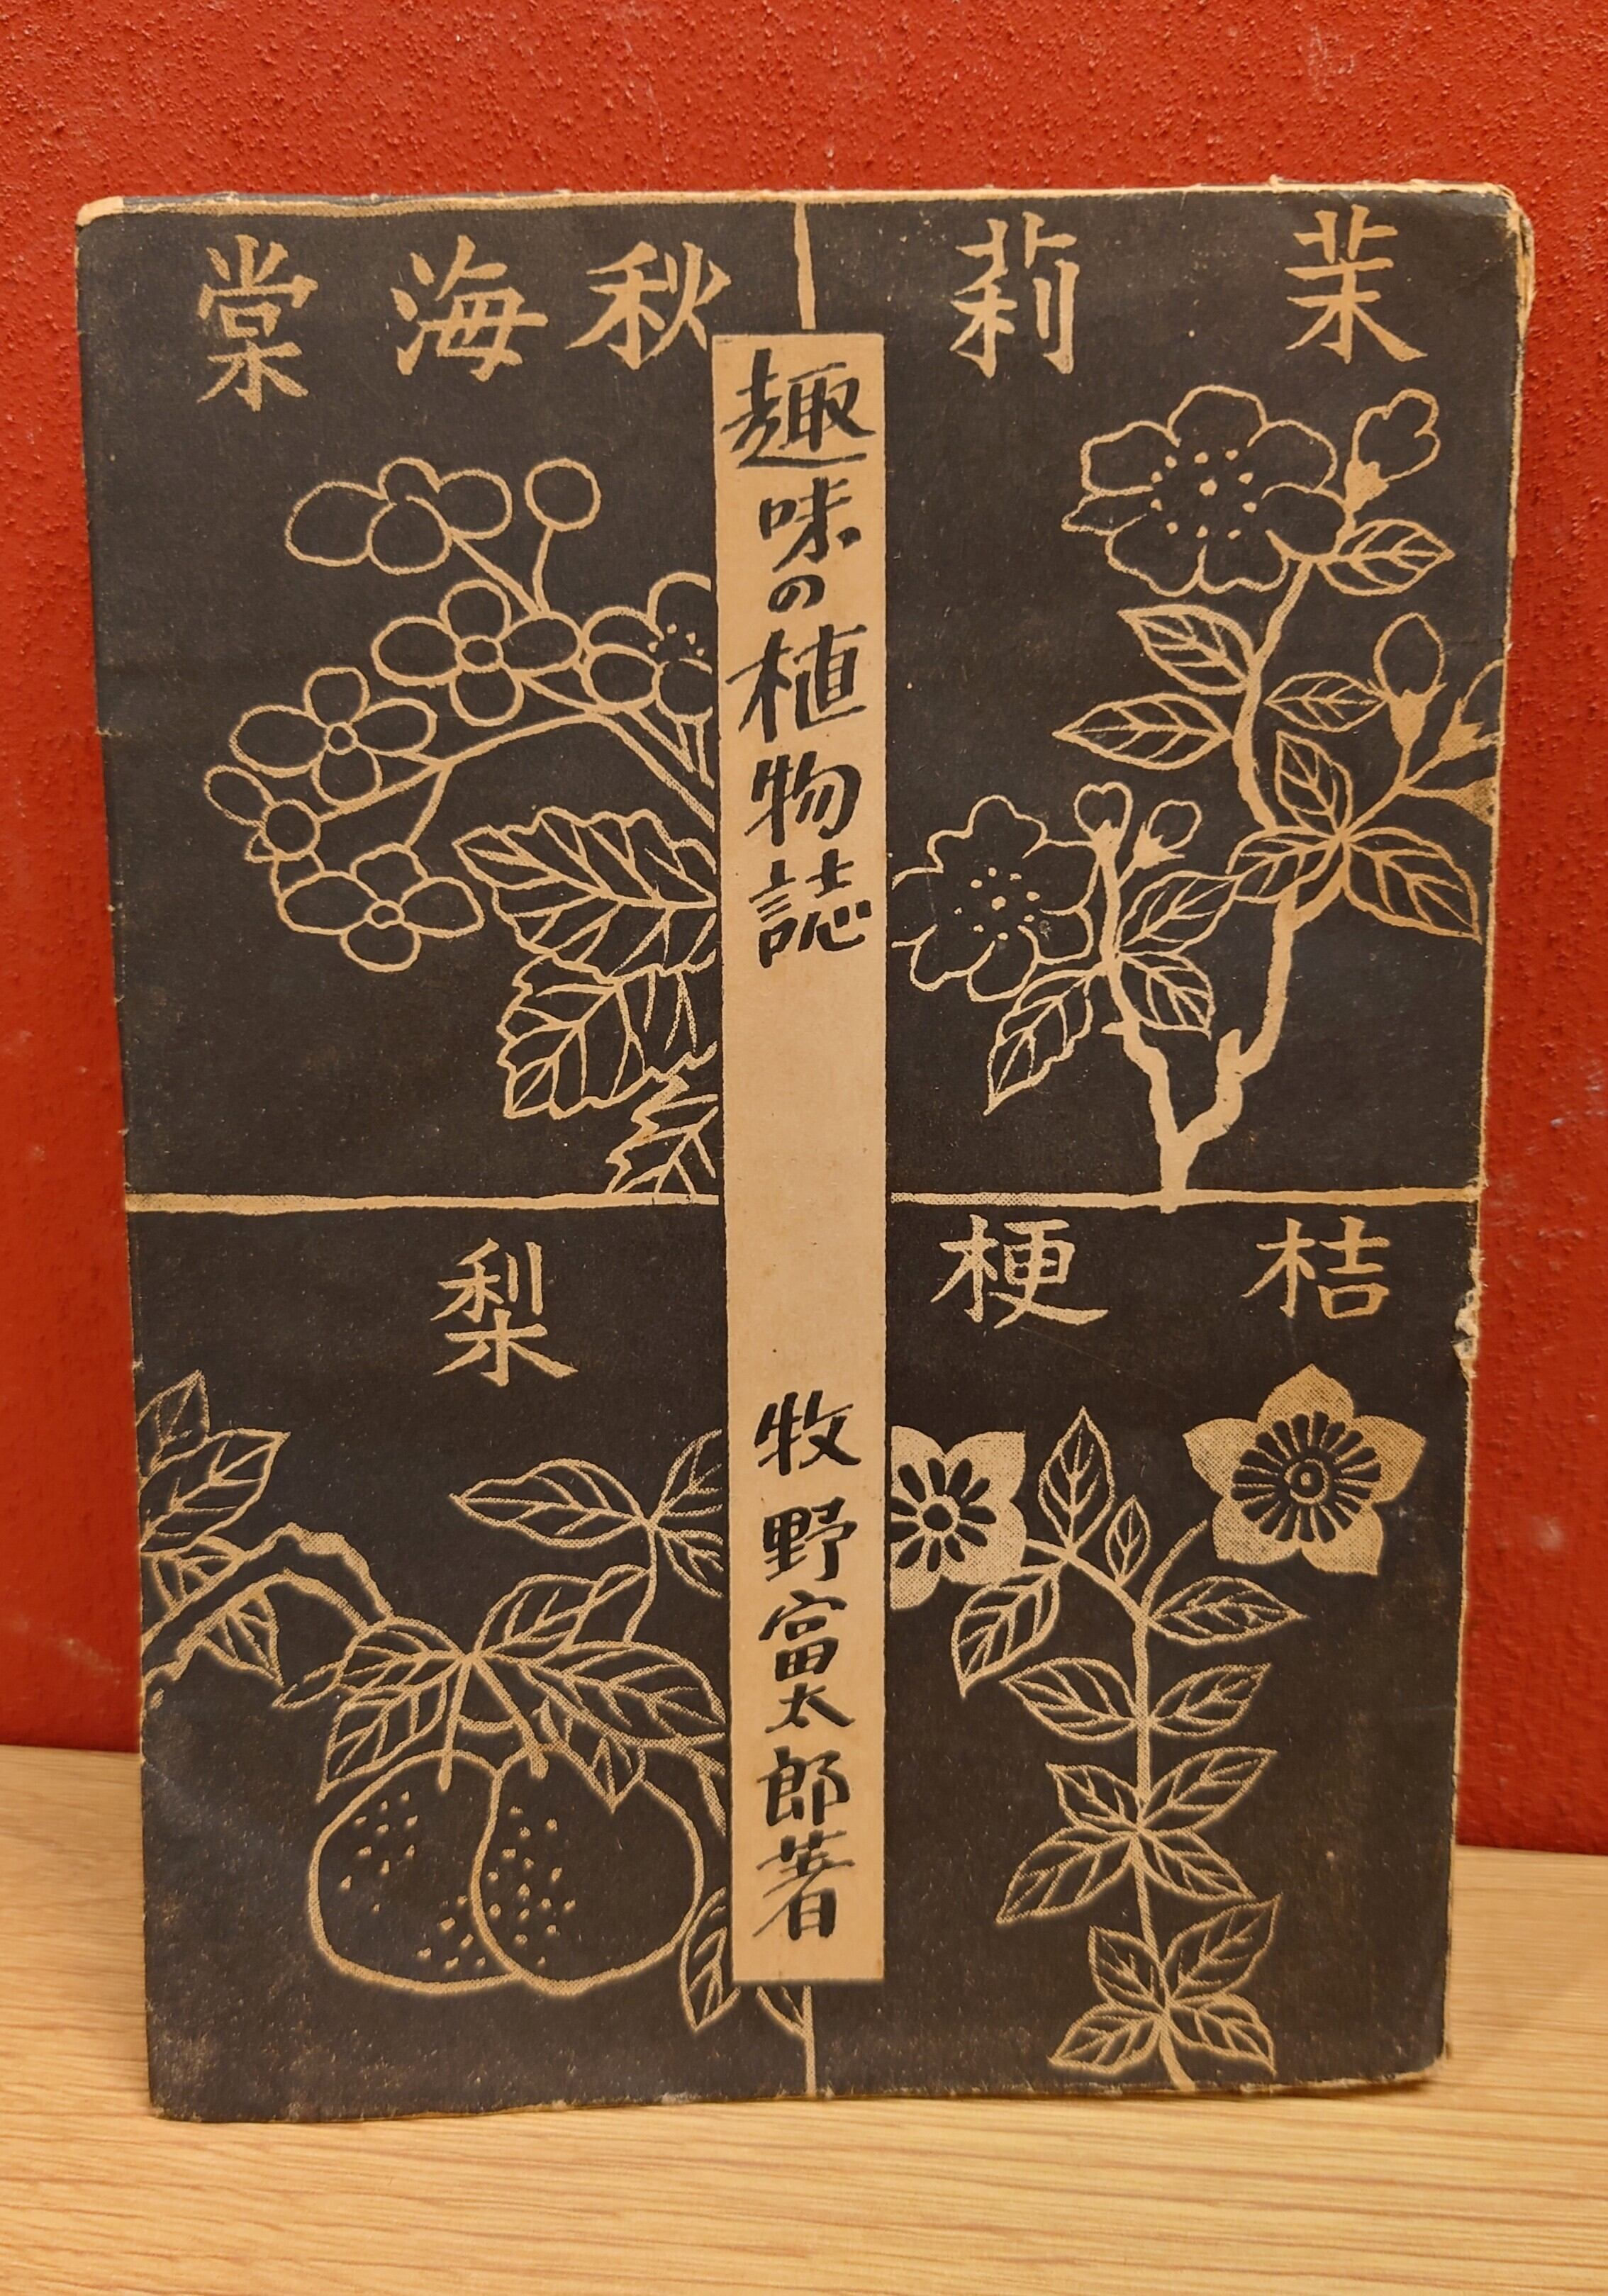 茉莉
秋海棠
趣味の植物誌
牧野富太郎著
桔梗
梨